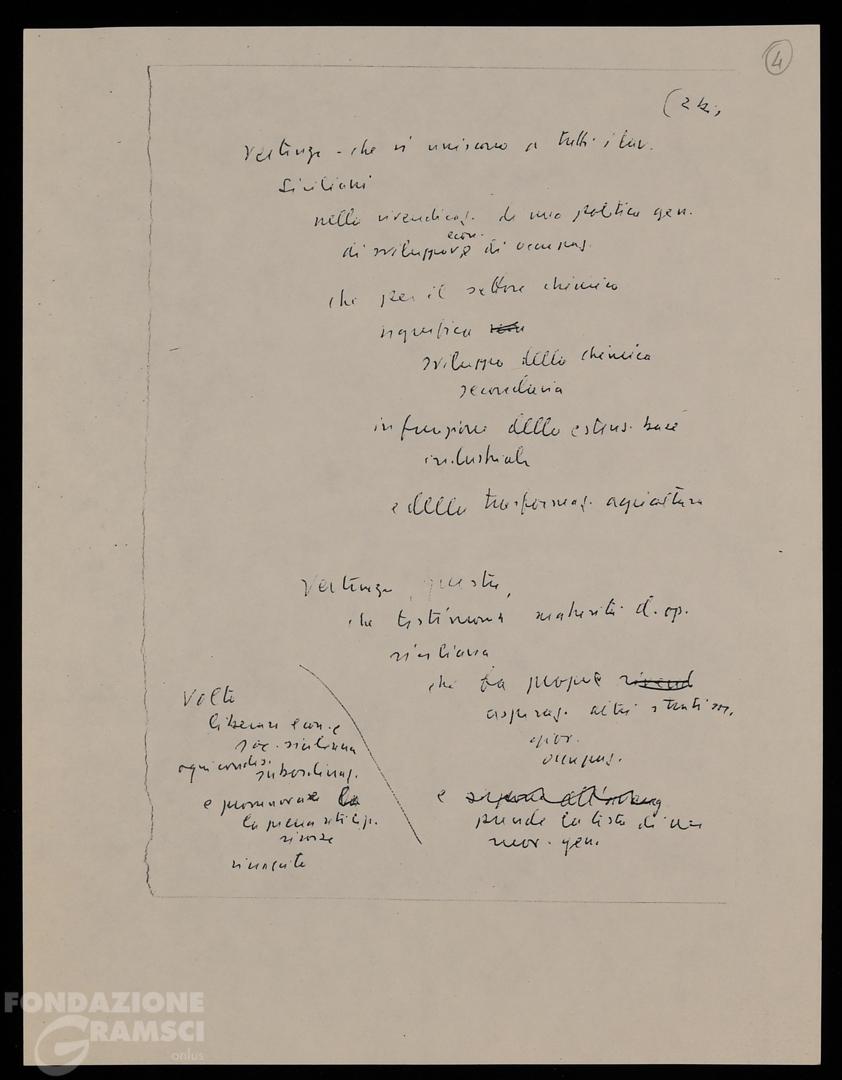 4
(2 bis
Vertenza - che si uniscono a tutti i lav.
Siciliani
nella rivendicaz. di una politica gen.
econ.
di sviluppo e di occupaz.
che per il settore chimico
significa
sviluppo della chimica
secondaria
in funzione della estens. base
industriale
e della trasformaz. agricoltura
Vertenza questa,
che testimonia maturità cl. op.
siciliana
che fa proprie
aspiraz. altri strati soc.
giov.
occupaz.
e
prende la testa di un
mov. gen.
Volta
liberare econ. e
soc. siciliana
ogni condiz.
subordinaz.
e promuovere
la piena utiliz.
risorse
rinascita
FONDAZIONE
GRAMSCI
onlus